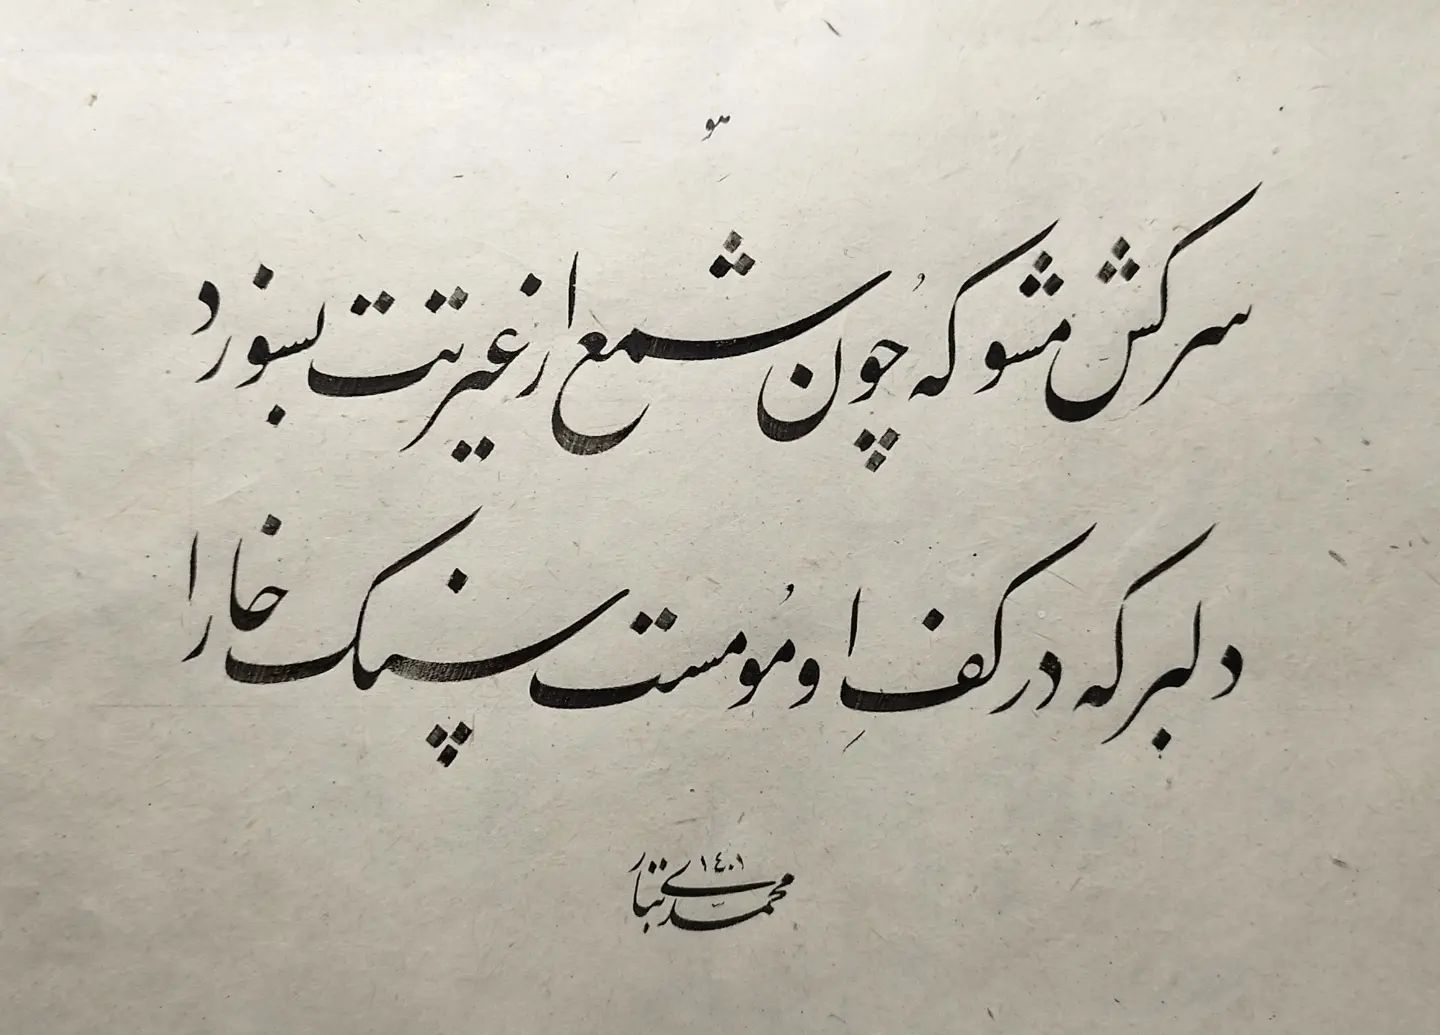 هو
سرکش مشو که چون شمع از غیرتت بسوزد
دلبر که در کفِ او مُومست سنگ خارا
۱٤۰۱
محمدی تبار